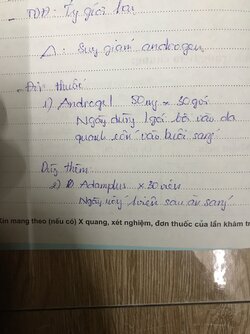 Δ: Suy giảm androgen
Đơn thuốc
1) Androgel 50mg x 30 gói
Ngày dùng 1 gói bôi vào da
quanh rốn vào buổi sáng
Dùng thêm:
2) Adamplus x 30 viên
Ngày uống 1 viên sau ăn sáng
in mang theo (nếu có) X quang, xét nghiệm, đơn thuốc của lần khám tr